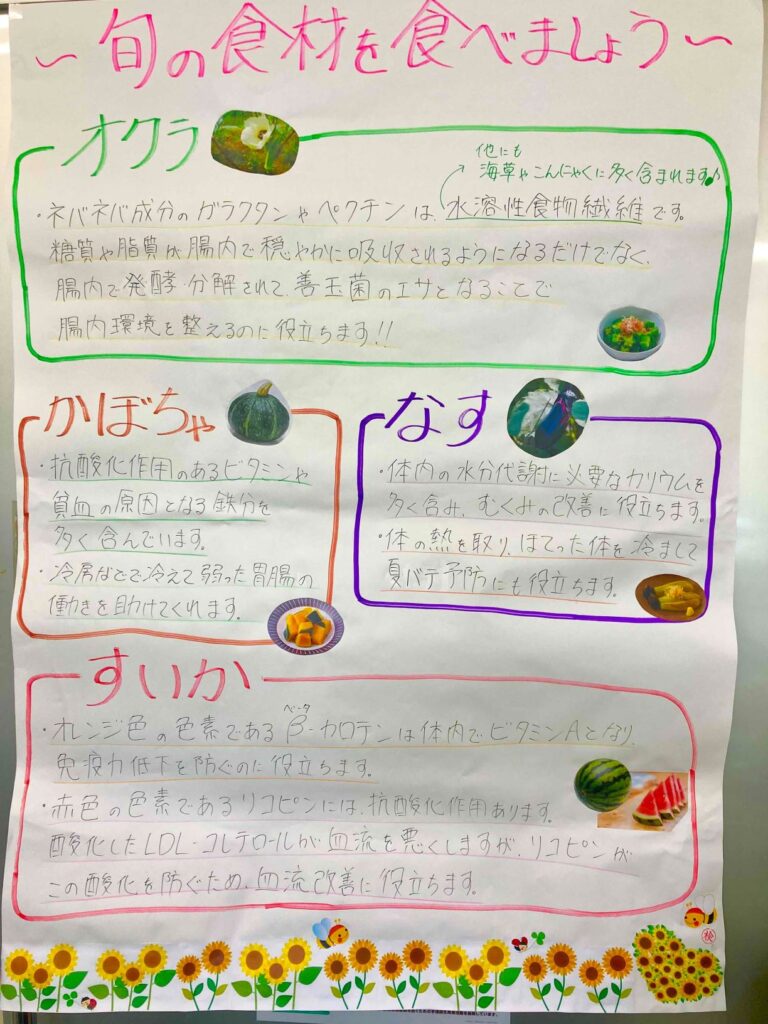 ～旬の食材を食べましょう～
オクラ
他にも
海草やこんにゃくに多く含まれます♪
・ネバネバ成分のガラクタンやペクチンは、水溶性食物繊維です。
糖質や脂質が腸内で穏やかに吸収されるようになるだけでなく、
腸内で発酵・分解されて、善玉菌のエサとなることで
腸内環境を整えるのに役立ちます!!
かぼちゃ
・抗酸化作用のあるビタミンや
貧血の原因となる鉄分を
多く含んでいます。
・冷房などで冷えて弱った胃腸の
働きを助けてくれます。
なす
・体内の水分代謝に必要なカリウムを
多く含み、むくみの改善に役立ちます。
・体の熱を取り、ほてった体を冷まして
夏バテ予防にも役立ちます。
すいか
ベータ
・オレンジ色の色素であるβ-カロテンは体内でビタミンAとなり、
免疫力低下を防ぐのに役立ちます。
・赤色の色素であるリコピンには、抗酸化作用あります。
酸化したLDL・コレテロールが血流を悪くしますが、リコピンが
この酸化を防ぐため、血流改善に役立ちます。
検